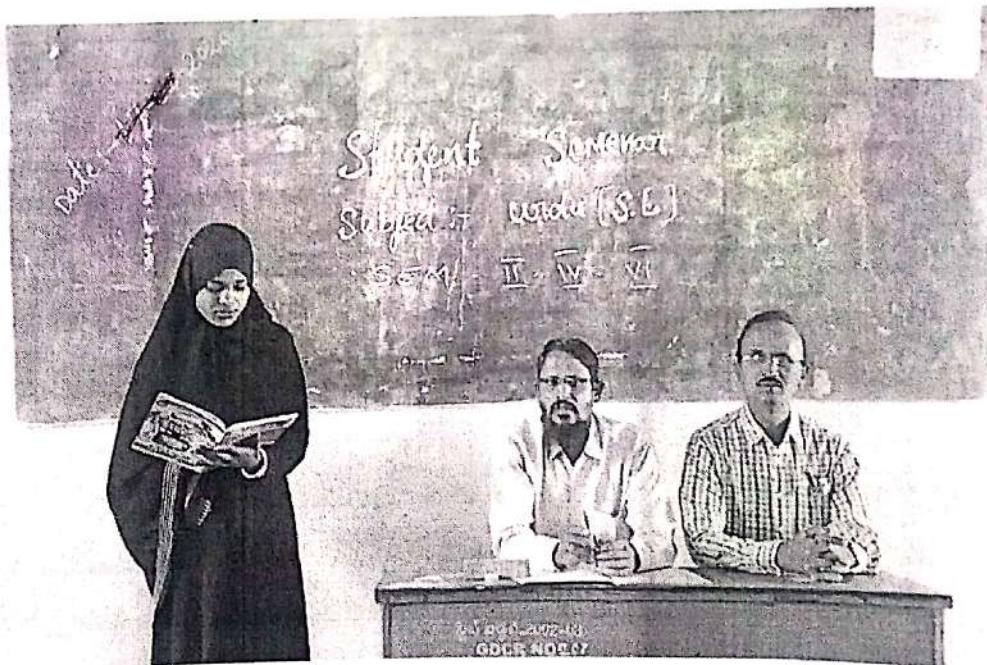 Date :- 2020
Student Seminar
Subject :- Urdu [S.L]
SEM/- II - IV - VI
2002-03
GDCR NO